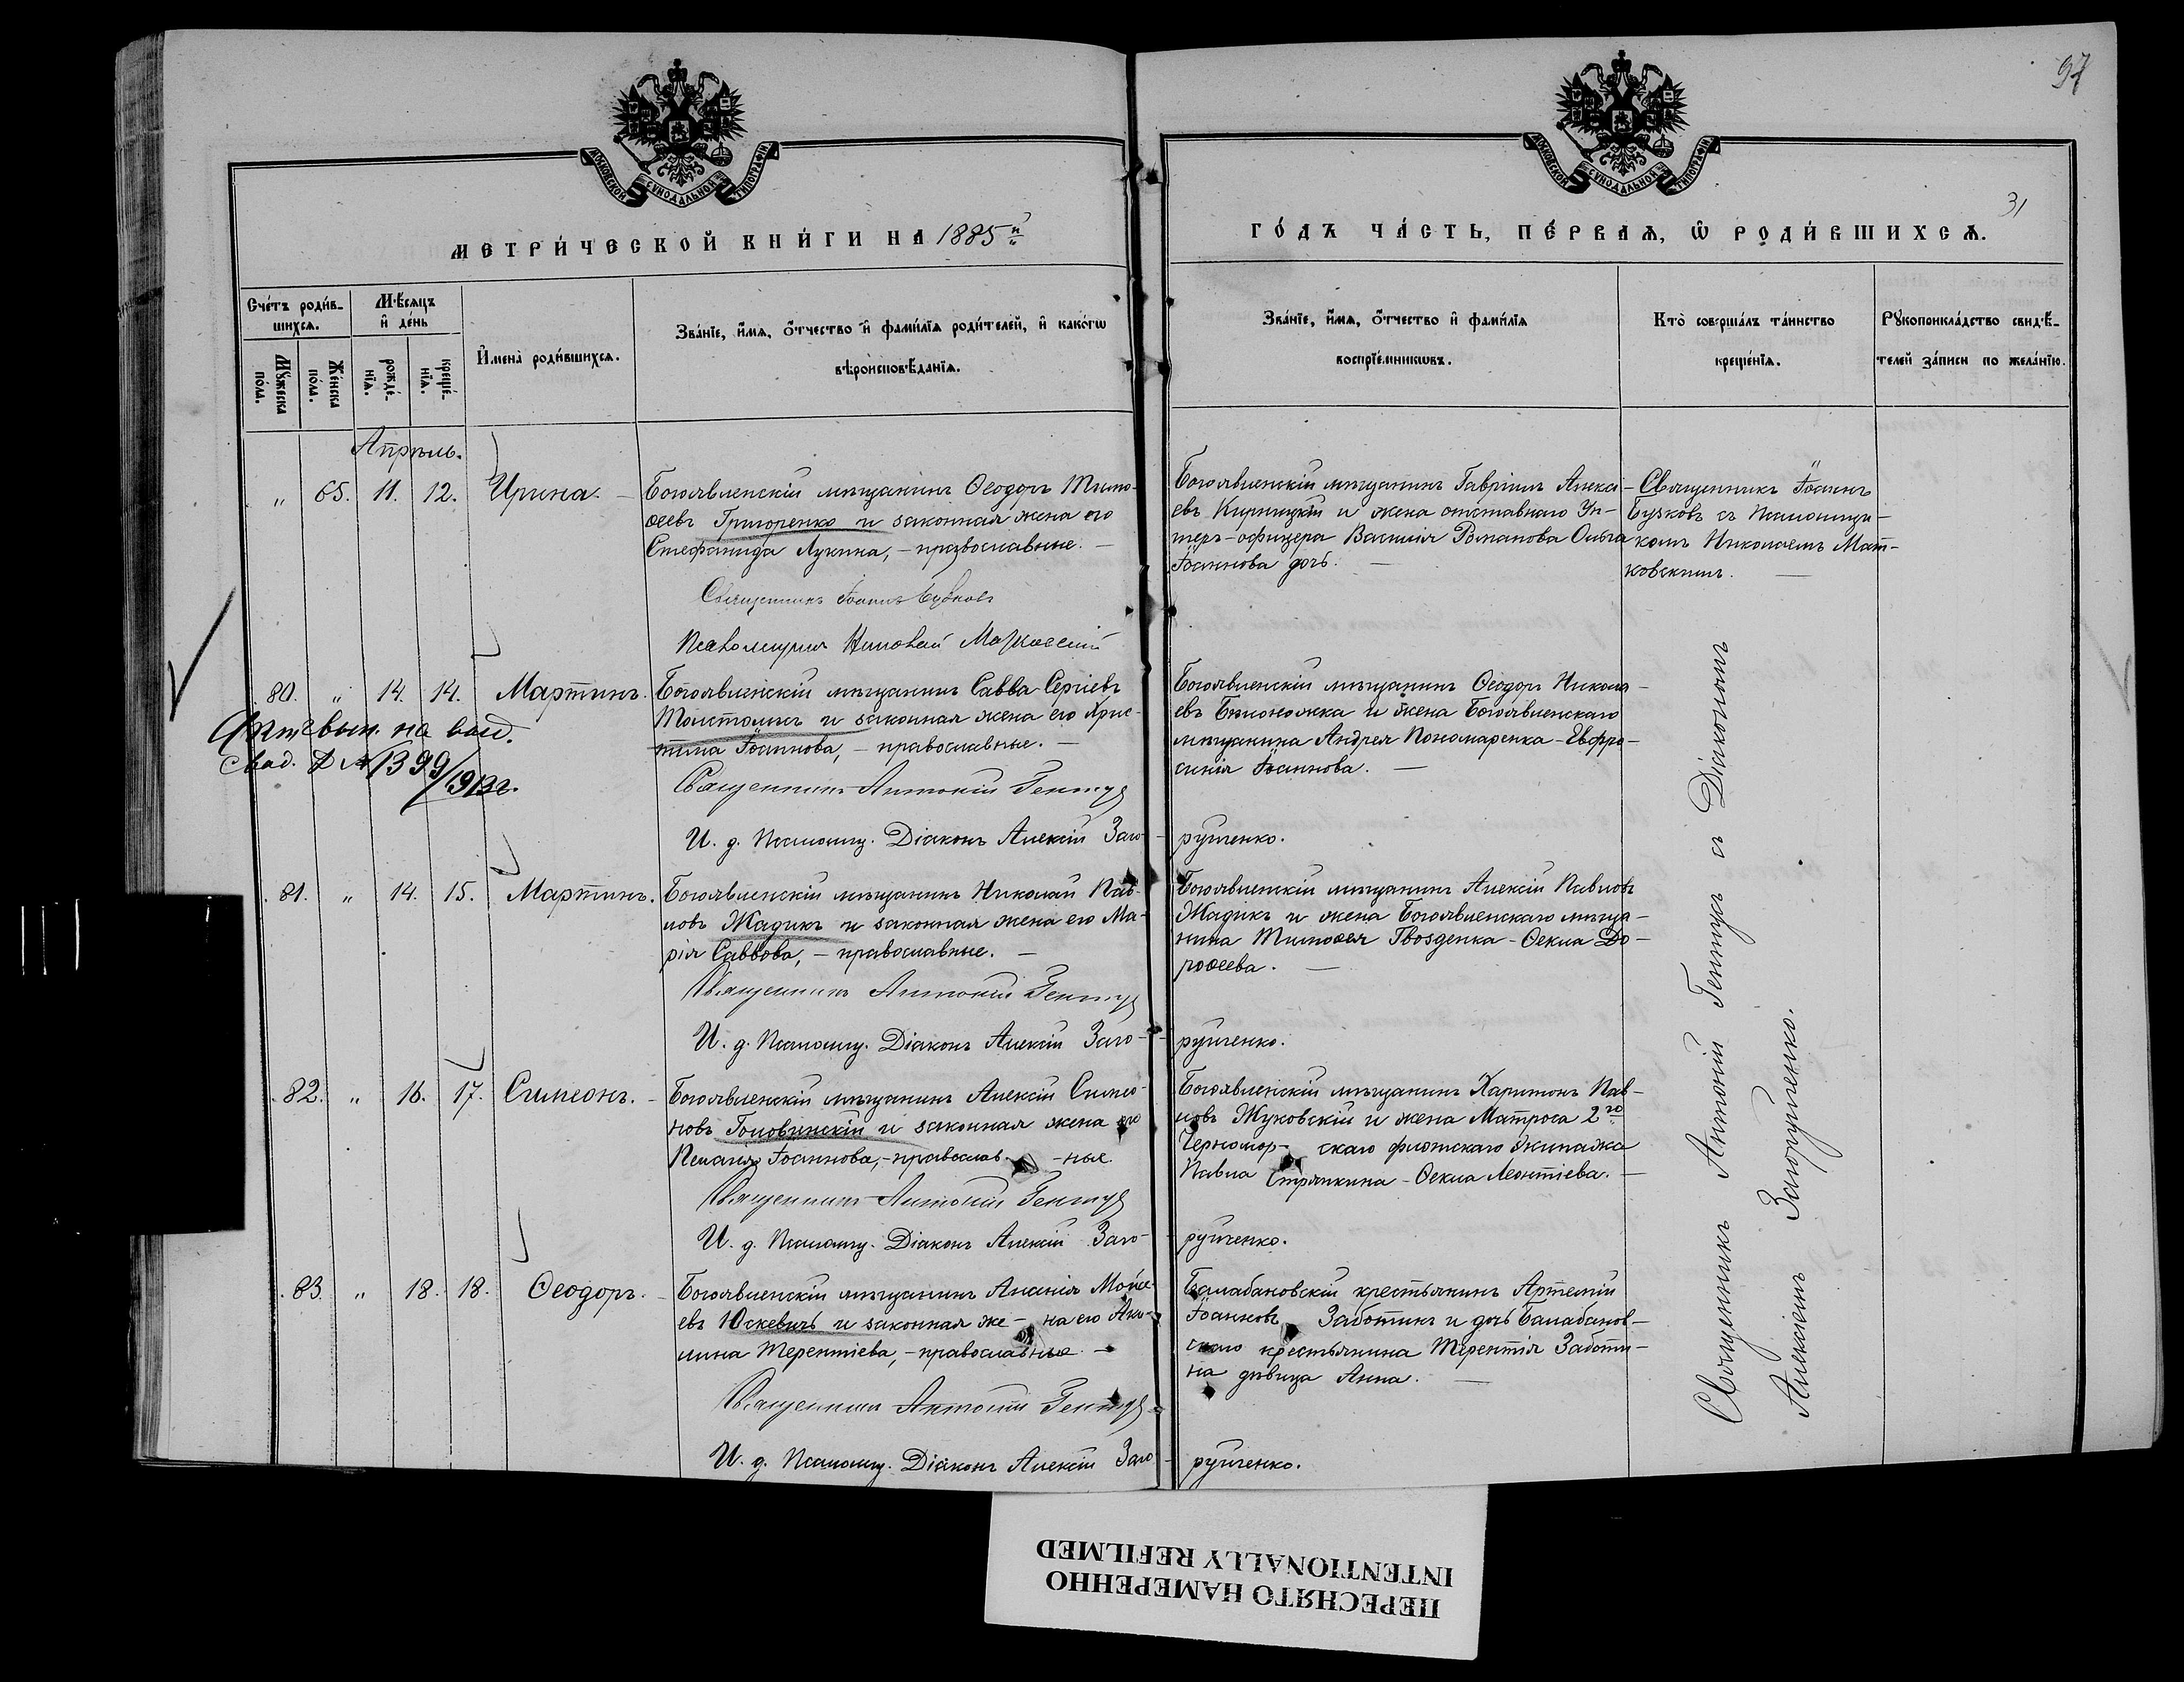 97
31
МОСКОВСКОЙ СѴНОДАЛЬНОЙ ТИПОГРАФІИ
МОСКОВСКОЙ СѴНОДАЛЬНОЙ ТИПОГРАФІИ
МЕТРИ́ЧЕСКОЙ КНИ́ГИ НА 1885й
ГО́ДЪ ЧА́СТЬ, ПЕ́РВАѦ, Ѡ҆ РОДИ́ВШИХСѦ.
Сче́тъ роди́в-
шихсѧ.
Мꙋ́жеска по́ла.
Же́нска по́ла.
Мѣ́сѧцъ
и҆ де́нь
рожде́-нїѧ.
креще́-нїѧ.
И҆мена̀ роди́вшихсѧ.
Зва́нїе, и҆́мѧ, ѻ҆́тчество и҆ фами́лїѧ роди́телей, и҆ како́гѡ
вѣроисповѣ́данїѧ.
Зва́нїе, и҆́мѧ, ѻ҆́тчество и҆ фами́лїѧ
воспрїе́мникѡвъ.
Кто̀ соверша́лъ та́инство
креще́нїѧ.
Рꙋкоприкла́дство свидѣ́-
телей за́писи по жела́нїю.
Апрѣль.
„ 65. 11. 12. Ирина. –
Богоявленскій мѣщанинъ Ѳеодоръ Тимо-
ѳеевъ Григоренко и законная жена его
Стефанида Лукина, – православные. –
Священникъ Іоаннъ Бузковъ
Псаломщикъ Николай Матковскій
Богоявленскій мѣщанинъ Гавріилъ Алексі-
евъ Кирницкій и жена отставнаго Ун-
теръ-офицера Василія Романова Ольга
Іоаннова дочь. –
Священникъ Іоаннъ
Бузковъ съ Псаломщи-
комъ Николаемъ Мат-
ковскимъ. –
80. „ 14. 14. Мартинъ.
Богоявленскій мѣщанинъ Савва Сергіевъ
Толстолыкъ и законная жена его Хрис-
тина Іоаннова, – православные. –
Священникъ Антоній Гентуз
И. д. Псаломщ. Діаконъ Алексій Заго-
рупченко.
Богоявленскій мѣщанинъ Ѳеодоръ Никола-
евъ Бѣлоножка и жена Богоявленскаго
мѣщанина Андрея Пономаренка – Евфро-
синія Іоаннова. –
№ 1399/1913г.
81. „ 14. 15. Мартинъ.
Богоявленскій мѣщанинъ Николай Пав-
ловъ Жадикъ и законная жена его Ма-
рія Саввова, – православные. –
Священникъ Антоній Гентуз
И. д. Псаломщ. Діаконъ Алексій Заго-
рупченко.
Богоявленскій мѣщанинъ Алексій Павловъ
Жадікъ и жена Богоявленскаго мѣща-
нина Тимоѳея Гвозденка – Ѳекла До-
роѳеева. –
82. „ 16. 17. Симеонъ. –
Богоявленскій мѣщанинъ Алексій Симео-
новъ Головинскій и законная жена его
Пелагія Іоаннова, – православ- -ные.
Священникъ Антоній Гентуз
И. д. Псаломщ. Діаконъ Алексій Заго-
рупченко.
Богоявленскій мѣщанинъ Харитонъ Пав-
ловъ Жуковскій и жена Матроса 2го
Черномор- скаго флотскаго Экипажа
Павла Стрянкина – Ѳекла Леонтіева. –
83. „ 18. 18. Ѳеодоръ. –
Богоявленскій мѣщанинъ Ананія Мойсе-
евъ Юскевичъ и законная же- на его Аку-
лина Терентіева, – православные. –
Священникъ Антоній Гентуз
И. д. Псаломщ. Діаконъ Алексій Заго-
рупченко.
Балабановскій крестьянинъ Артемій
Іоанновъ Заботинъ и дочь Балабанов-
скаго крестьянина Терентія Заботи-
на дѣвица Анна. –
Священникъ Антоній Гентузъ съ Діакономъ
Алексіемъ Загорупченко.
ПЕРЕСНЯТО НАМЕРЕННО
INTENTIONALLY REFILMED